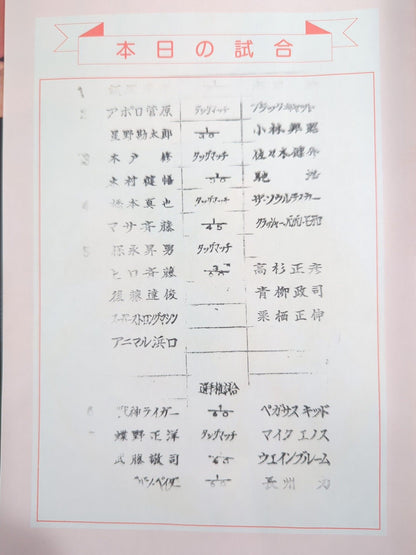 本日の試合
1
アポロ菅原 タッグマッチ ブラックキャット
星野勘太郎 1/30 小林邦昭
木戸修 タッグマッチ 佐々木健介
木村健悟 馳浩
4 橋本真也 タッグマッチ ザ・ソウルテイカー
マサ斉藤 1/45 クラッシャー・バンバン・ビガロ
5 保永昇男 タッグマッチ
ヒロ斉藤 高杉正彦
後藤達俊 青柳政司
スーパーストロングマシン 栗栖正伸
アニマル浜口
選手権試合
6 獣神ライガー 1/60 ペガサスキッド
蝶野正洋 タッグマッチ マイクエノス
武藤敬司 ウエインブルーム
ベイダー 長州力